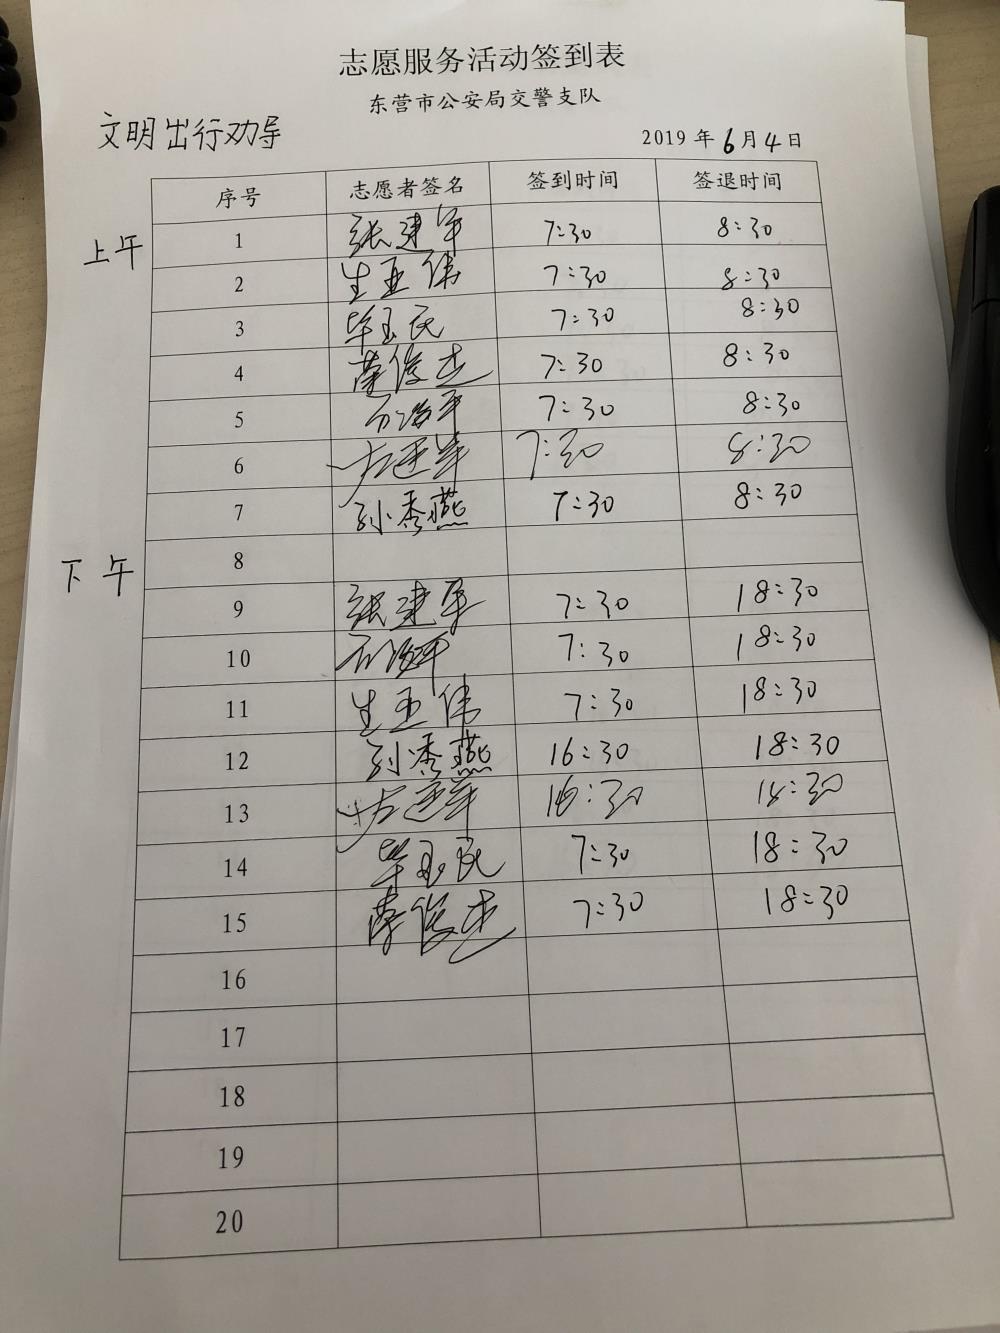 志愿服务活动签到表
东营市公安局交警支队
文明出行劝导
2019 年 6 月 4 日
序号 志愿者签名 签到时间 签退时间
上午
1 张建军 7:30 8:30
2 生亚伟 7:30 8:30
3 毕玉民 7:30 8:30
4 俊杰 7:30 8:30
5 7:30 8:30
6 7:30 8:30
7 孙秀燕 7:30 8:30
下午
8
9 张建军 7:30 18:30
10 7:30 18:30
11 生亚伟 7:30 18:30
12 孙秀燕 16:30 18:30
13 16:30 18:30
14 毕玉民 7:30 18:30
15 俊杰 7:30 18:30
16
17
18
19
20